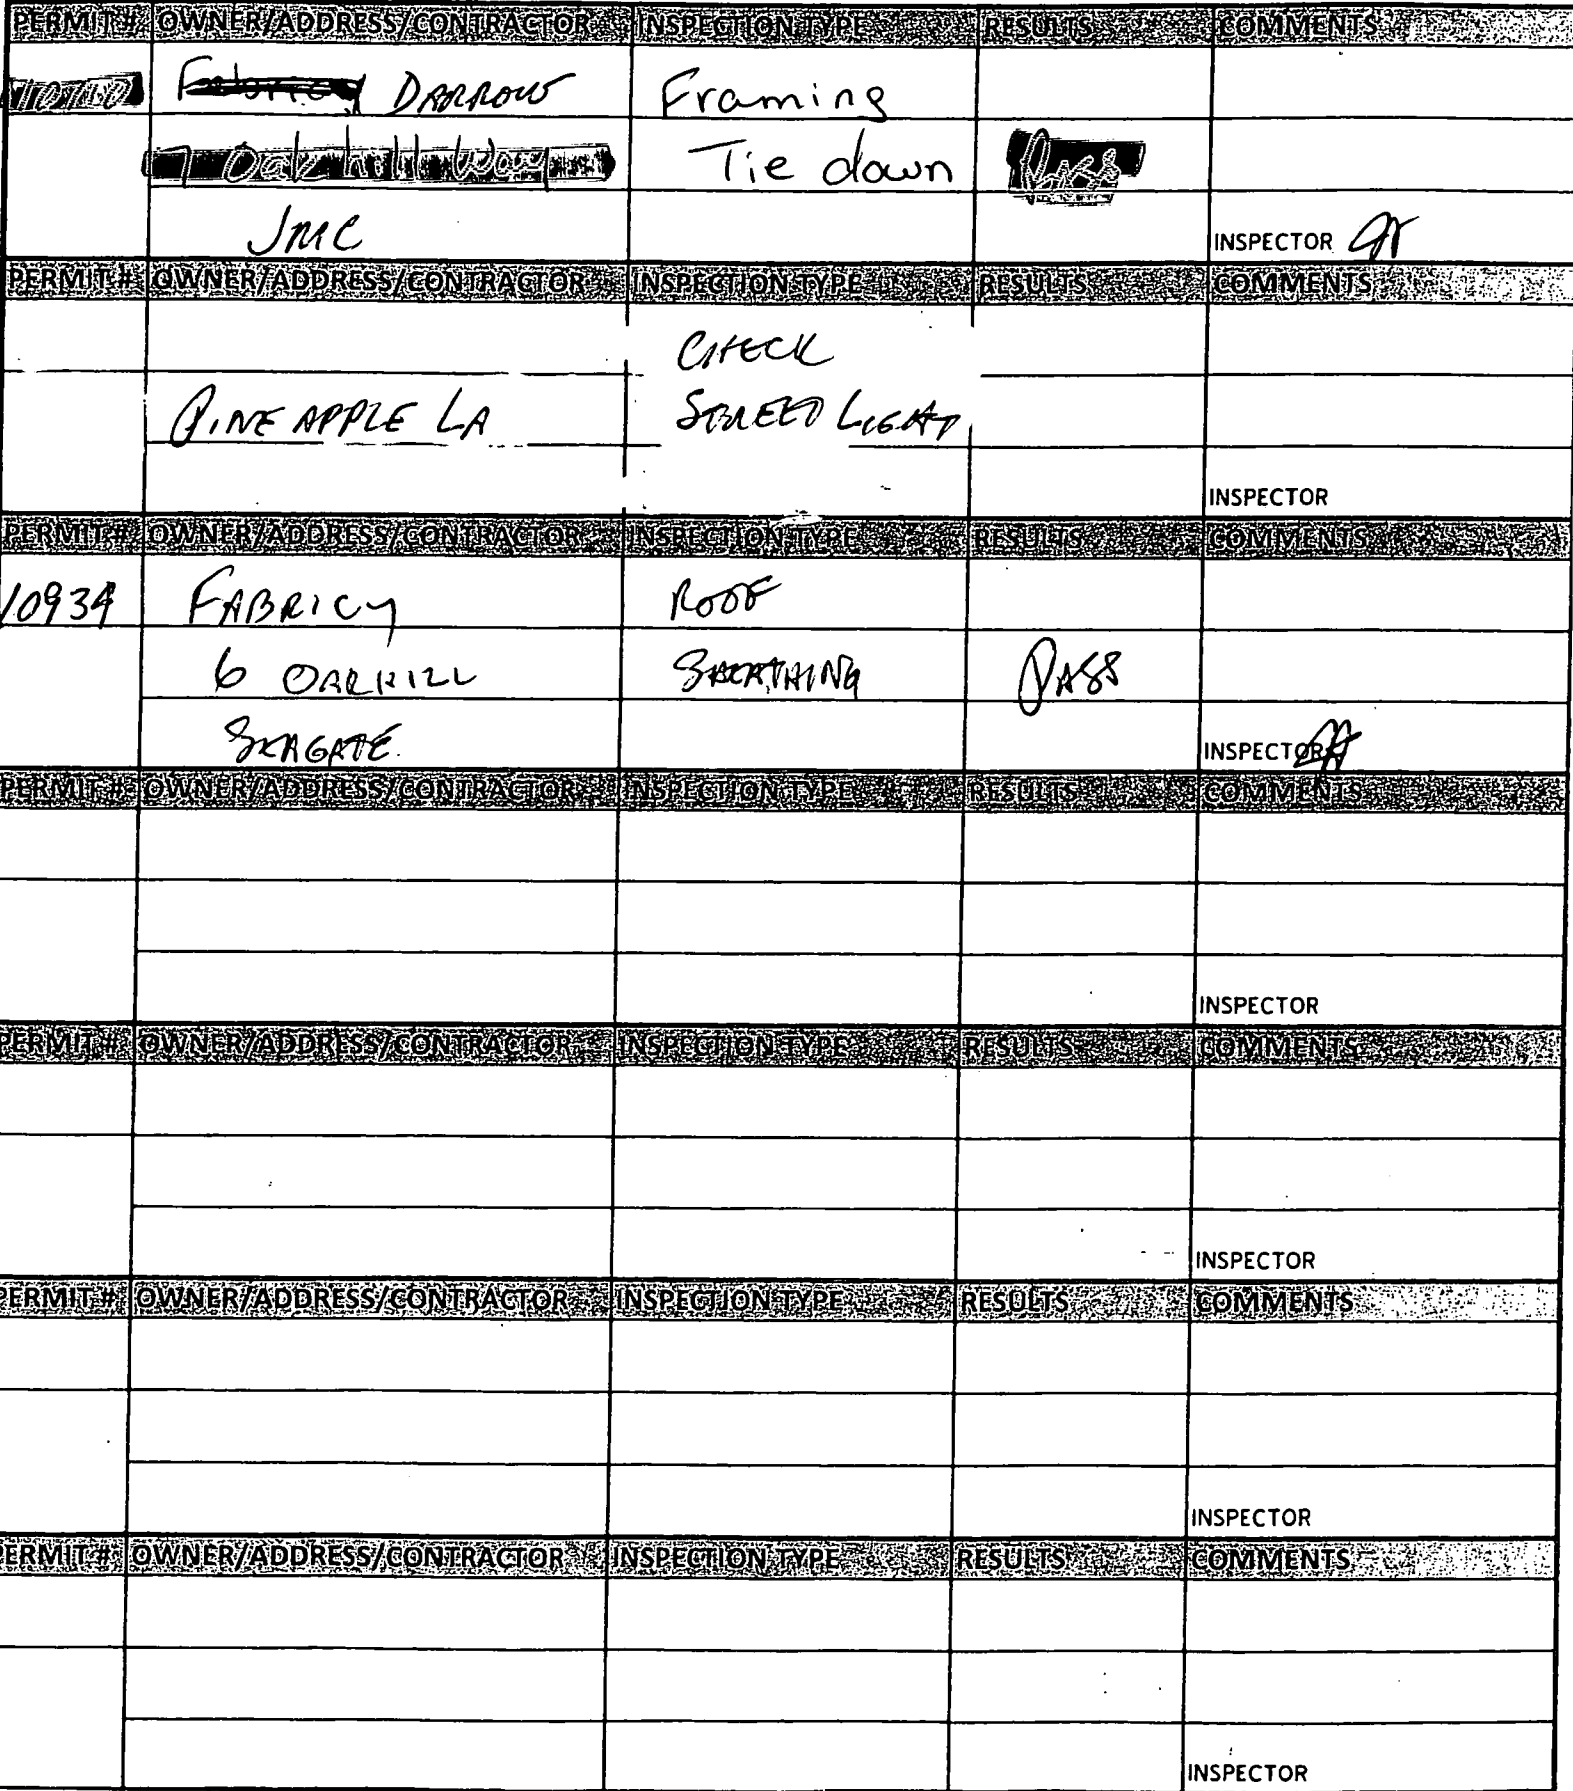 PERMIT # OWNER/ADDRESS/CONTRACTOR INSPECTION TYPE RESULTS COMMENTS
DARROW Framing
7 Oak hill Way Tie down Pass
JMC INSPECTOR
PERMIT # OWNER/ADDRESS/CONTRACTOR INSPECTION TYPE RESULTS COMMENTS
CHECK
PINEAPPLE LA STREET LIGHT
INSPECTOR
PERMIT # OWNER/ADDRESS/CONTRACTOR INSPECTION TYPE RESULTS COMMENTS
10934 FABRICY ROOF
6 OAKHILL SHEATHING PASS
SEAGATE INSPECTOR
PERMIT # OWNER/ADDRESS/CONTRACTOR INSPECTION TYPE RESULTS COMMENTS
INSPECTOR
PERMIT # OWNER/ADDRESS/CONTRACTOR INSPECTION TYPE RESULTS COMMENTS
INSPECTOR
PERMIT # OWNER/ADDRESS/CONTRACTOR INSPECTION TYPE RESULTS COMMENTS
INSPECTOR
PERMIT # OWNER/ADDRESS/CONTRACTOR INSPECTION TYPE RESULTS COMMENTS
INSPECTOR